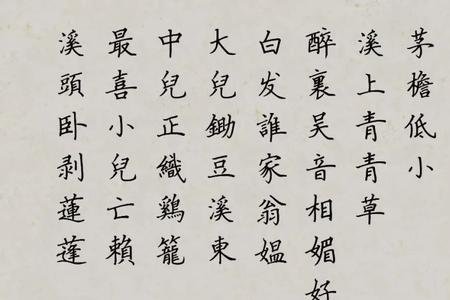 茅檐低小
溪上青青草
醉裏吴音相媚好
白发誰家翁媪
大兒鋤豆溪東
中兒正織鷄籠
最喜小兒亡賴
溪頭卧剥蓮蓬